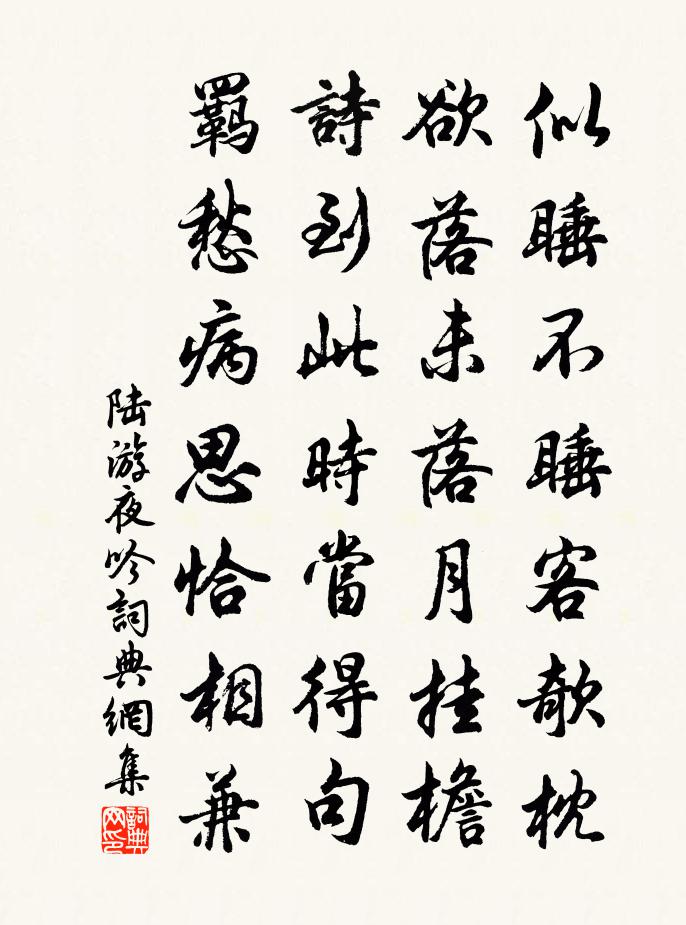 似睡不睡客欹枕
欲落未落月挂檐
詩到此時當得句
羈愁病思恰相兼
陆游夜吟詞典網集
詞典网印